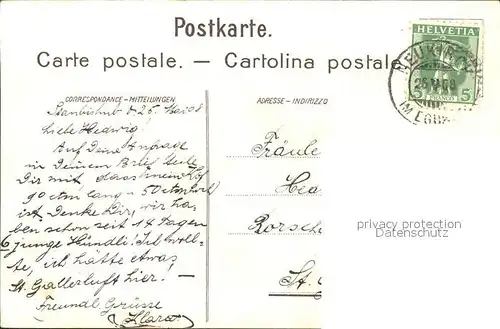 Postkarte.
Carte postale. — Cartolina postale
HELVETIA
FRANCO
5
CORRESPONDANCE - MITTEILUNGEN
ADRESSE - INDIRIZZO
25. Mai 08
Liebe Hedwig!
Auf Deine Anfrage
in Deinem Brief teile
Dir mit, dass mein
90 ctm lang - 50 ctm
ist. Denke Dir, wir ha-
ben schon seit 14 Tagen
6 junge Hundli! Ich woll-
te, ich hätte etwas
St. Gallerluft hier! —
Freundl. Grüsse
Klara
Fräule
Hed
Rorsch
St.
privacy protection
Datenschutz